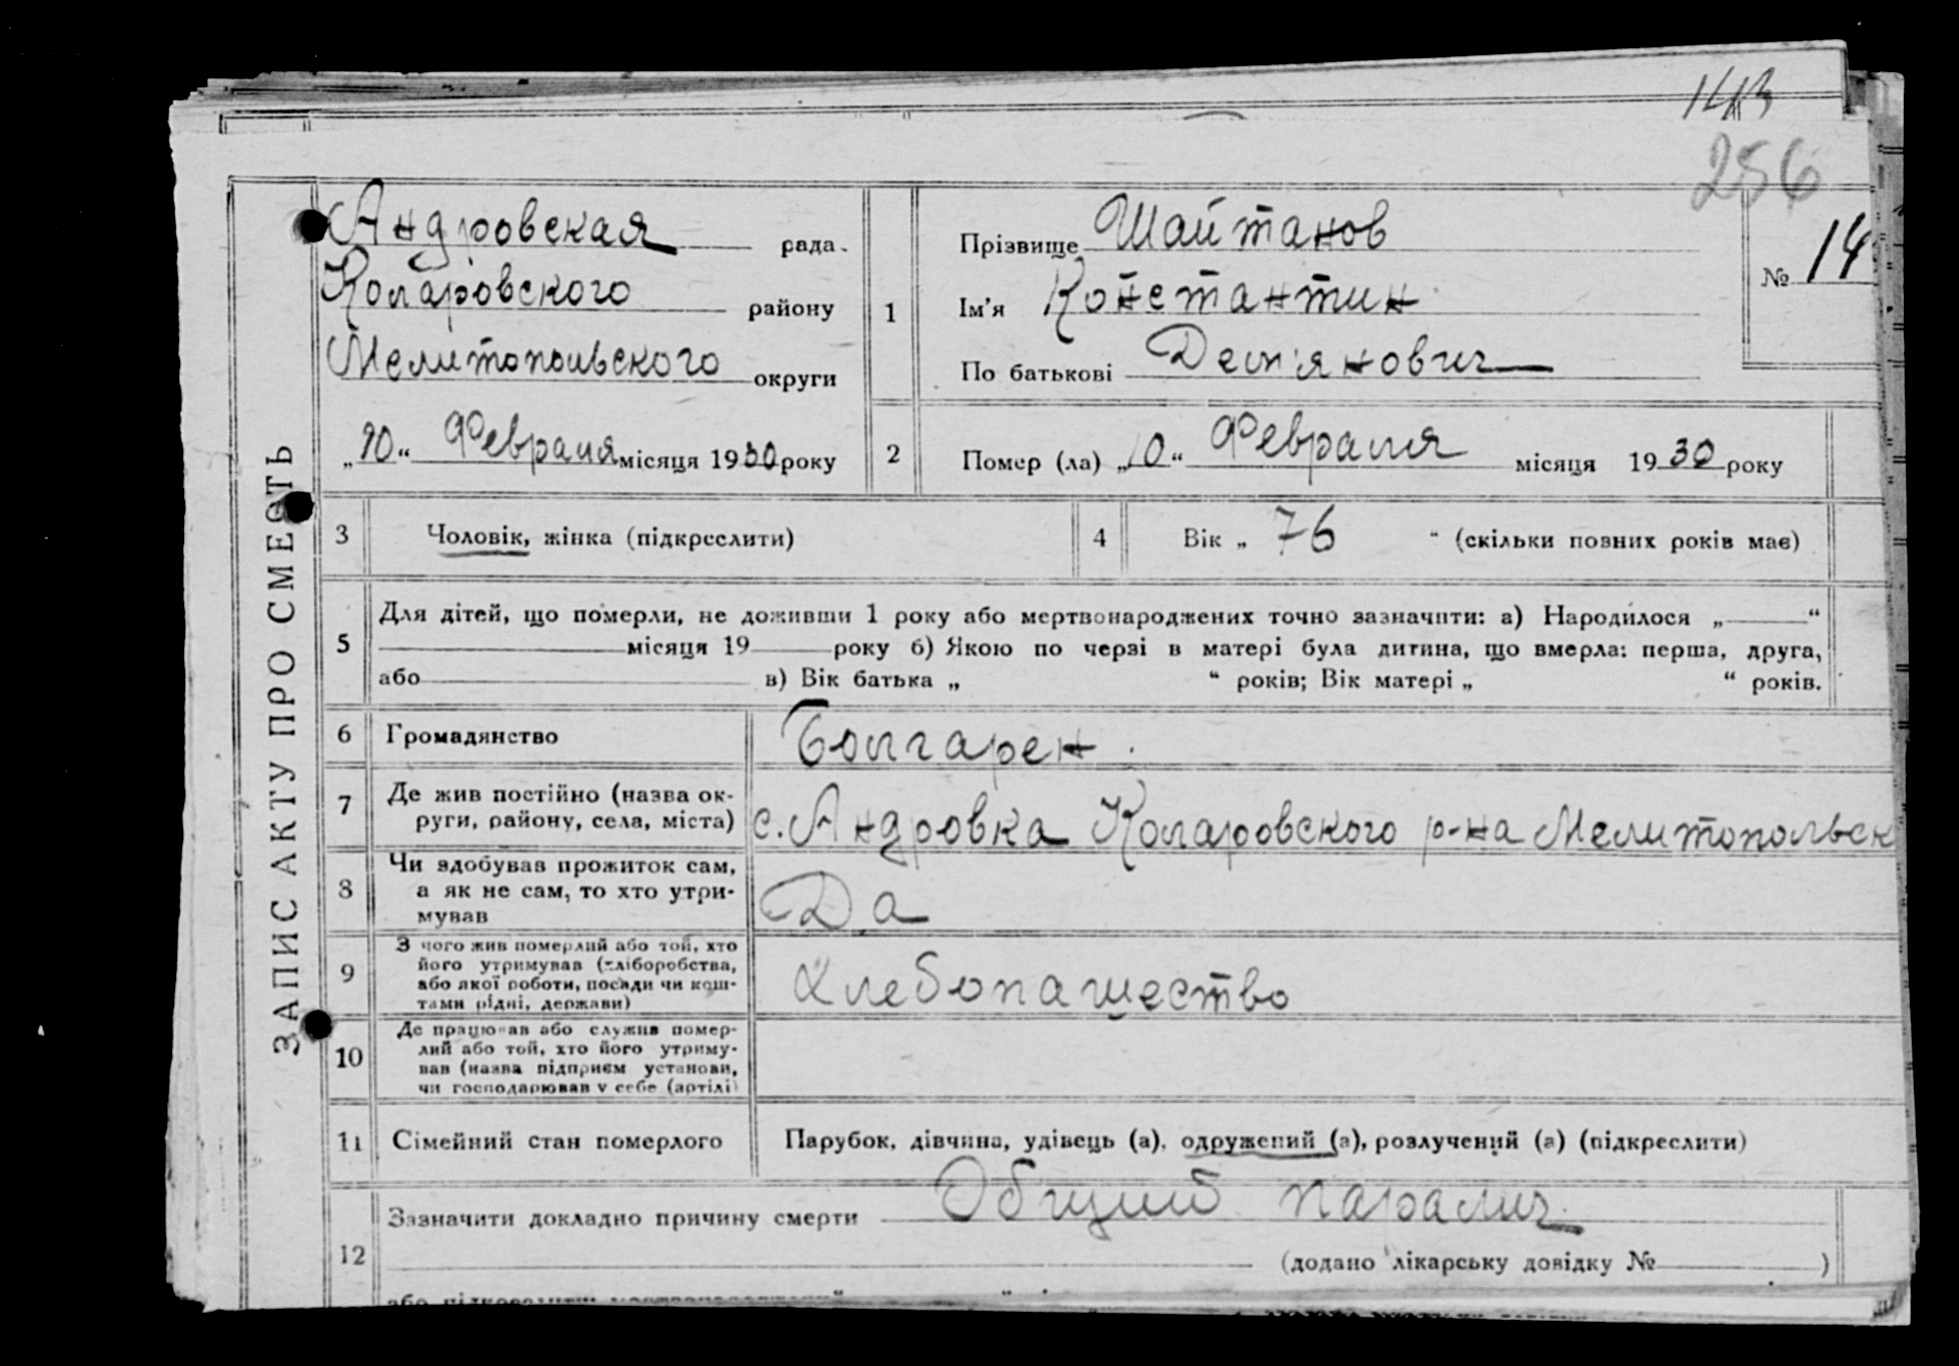 143
256
ЗАПИС АКТУ ПРО СМЕРТЬ
Андровская рада.
Коларовского району
Мелитопольского округи
„10“ Февраля місяця 1930 року
1
Прізвище Шайтанов
Ім'я Константин
По батькові Демянович
№ 14
2 Помер (ла) „10“ Февраля місяця 1930 року
3 Чоловік, жінка (підкреслити)
4 Вік „ 76 “ (скільки повних років має)
5
Для дітей, що померли, не доживши 1 року або мертвонароджених точно зазначити: а) Народилося „ “
місяця 19 року б) Якою по черзі в матері була дитина, що вмерла: перша, друга,
або в) Вік батька „ “ років; Вік матері „ “ років.
6 Громадянство Болгарен
7 Де жив постійно (назва ок-
руги, району, села, міста) с. Андровка Коларовского р-на Мелитопольск
8 Чи здобував прожиток сам,
а як не сам, то хто утри-
мував Да
9 З чого жив померлий або той, хто
його утримував (хліборобства,
або якої роботи, посади чи кош-
тами рідні, держави) Хлебопашество
10 Де працював або служив помер-
лий або той, хто його утриму-
вав (назва підприєм установи,
чи господарював у себе (артілі)
11 Сімейний стан померлого Парубок, дівчина, удівець (а), одружений (а), розлучений (а) (підкреслити)
12 Зазначити докладно причину смерти Общий паралич
(додано лікарську довідку № )